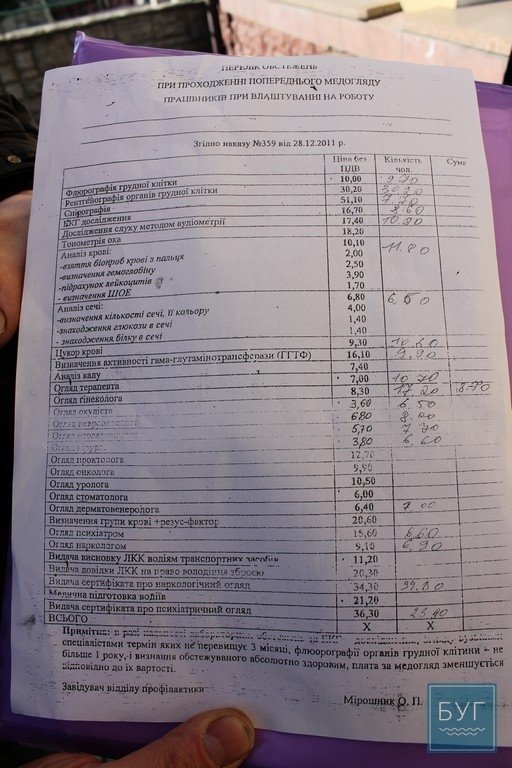 ПЕРЕЛІК ОБСТЕЖЕНЬ
ПРИ ПРОХОДЖЕННІ ПОПЕРЕДНЬОГО МЕДОГЛЯДУ
ПРАЦІВНИКІВ ПРИ ВЛАШТУВАННІ НА РОБОТУ
Згідно наказу №359 від 28.12.2011 р.
Ціна без ПДВ Кількість чол. Сума
Флюорографія грудної клітки 10,00 9.70
Рентгенографія органів грудної клітки 30,20 30.20
Спірографія 51,10
ЕКГ дослідження 16,70
Дослідження слуху методом аудіометрії 17,40 10.80
Тонометрія ока 18,20
Аналіз крові: 10,10
-взяття біопроб крові з пальця 2,00
-визначення гемоглобіну 2,50
-підрахунок лейкоцитів 3,90
- визначення ШОЕ 1,70
Аналіз сечі: 6,80
-визначення кількості сечі, її кольору 4,00
-знаходження глюкози в сечі 1,40
- знаходження білку в сечі 1,40
Цукор крові 9,30
Визначення активності гама-глутамінотрансферази (ГГТФ) 16,10 9.90
Аналіз калу 7,40
Огляд терапевта 7,00 10.70
Огляд гінеколога 8,30
Огляд окуліста 3,60 6.50
Огляд 6,80
Огляд 5,70 7.70
Огляд 3,80 6.60
Огляд проктолога 12,70
Огляд онколога 9,90
Огляд уролога 10,50
Огляд стоматолога 6,00
Огляд дерматовенеролога 6,40 7.00
Визначення групи крові +резус-фактор 20,60
Огляд психіатром 15,60 6.60
Огляд наркологом 9,10 6.90
Видача висновку ЛКК водіям транспортних засобів 11,20
Видача довідки ЛКК на право володіння зброєю 20,30
Видача сертифіката про наркологічний огляд 34,30 39.80
Медична підготовка водіїв 21,20
Видача сертифіката про психіатричний огляд 36,30 23.40
ВСЬОГО X X
Примітка: в разі
спеціалістами термін яких не перевищує 3 місяці, флюорографії органів грудної клітини – не
більше 1 року, і визнання обстежуваного абсолютно здоровим, плата за медогляд зменшується
відповідно до їх вартості.
Завідувач відділу профілактики Мірошник О. П.
БУГ